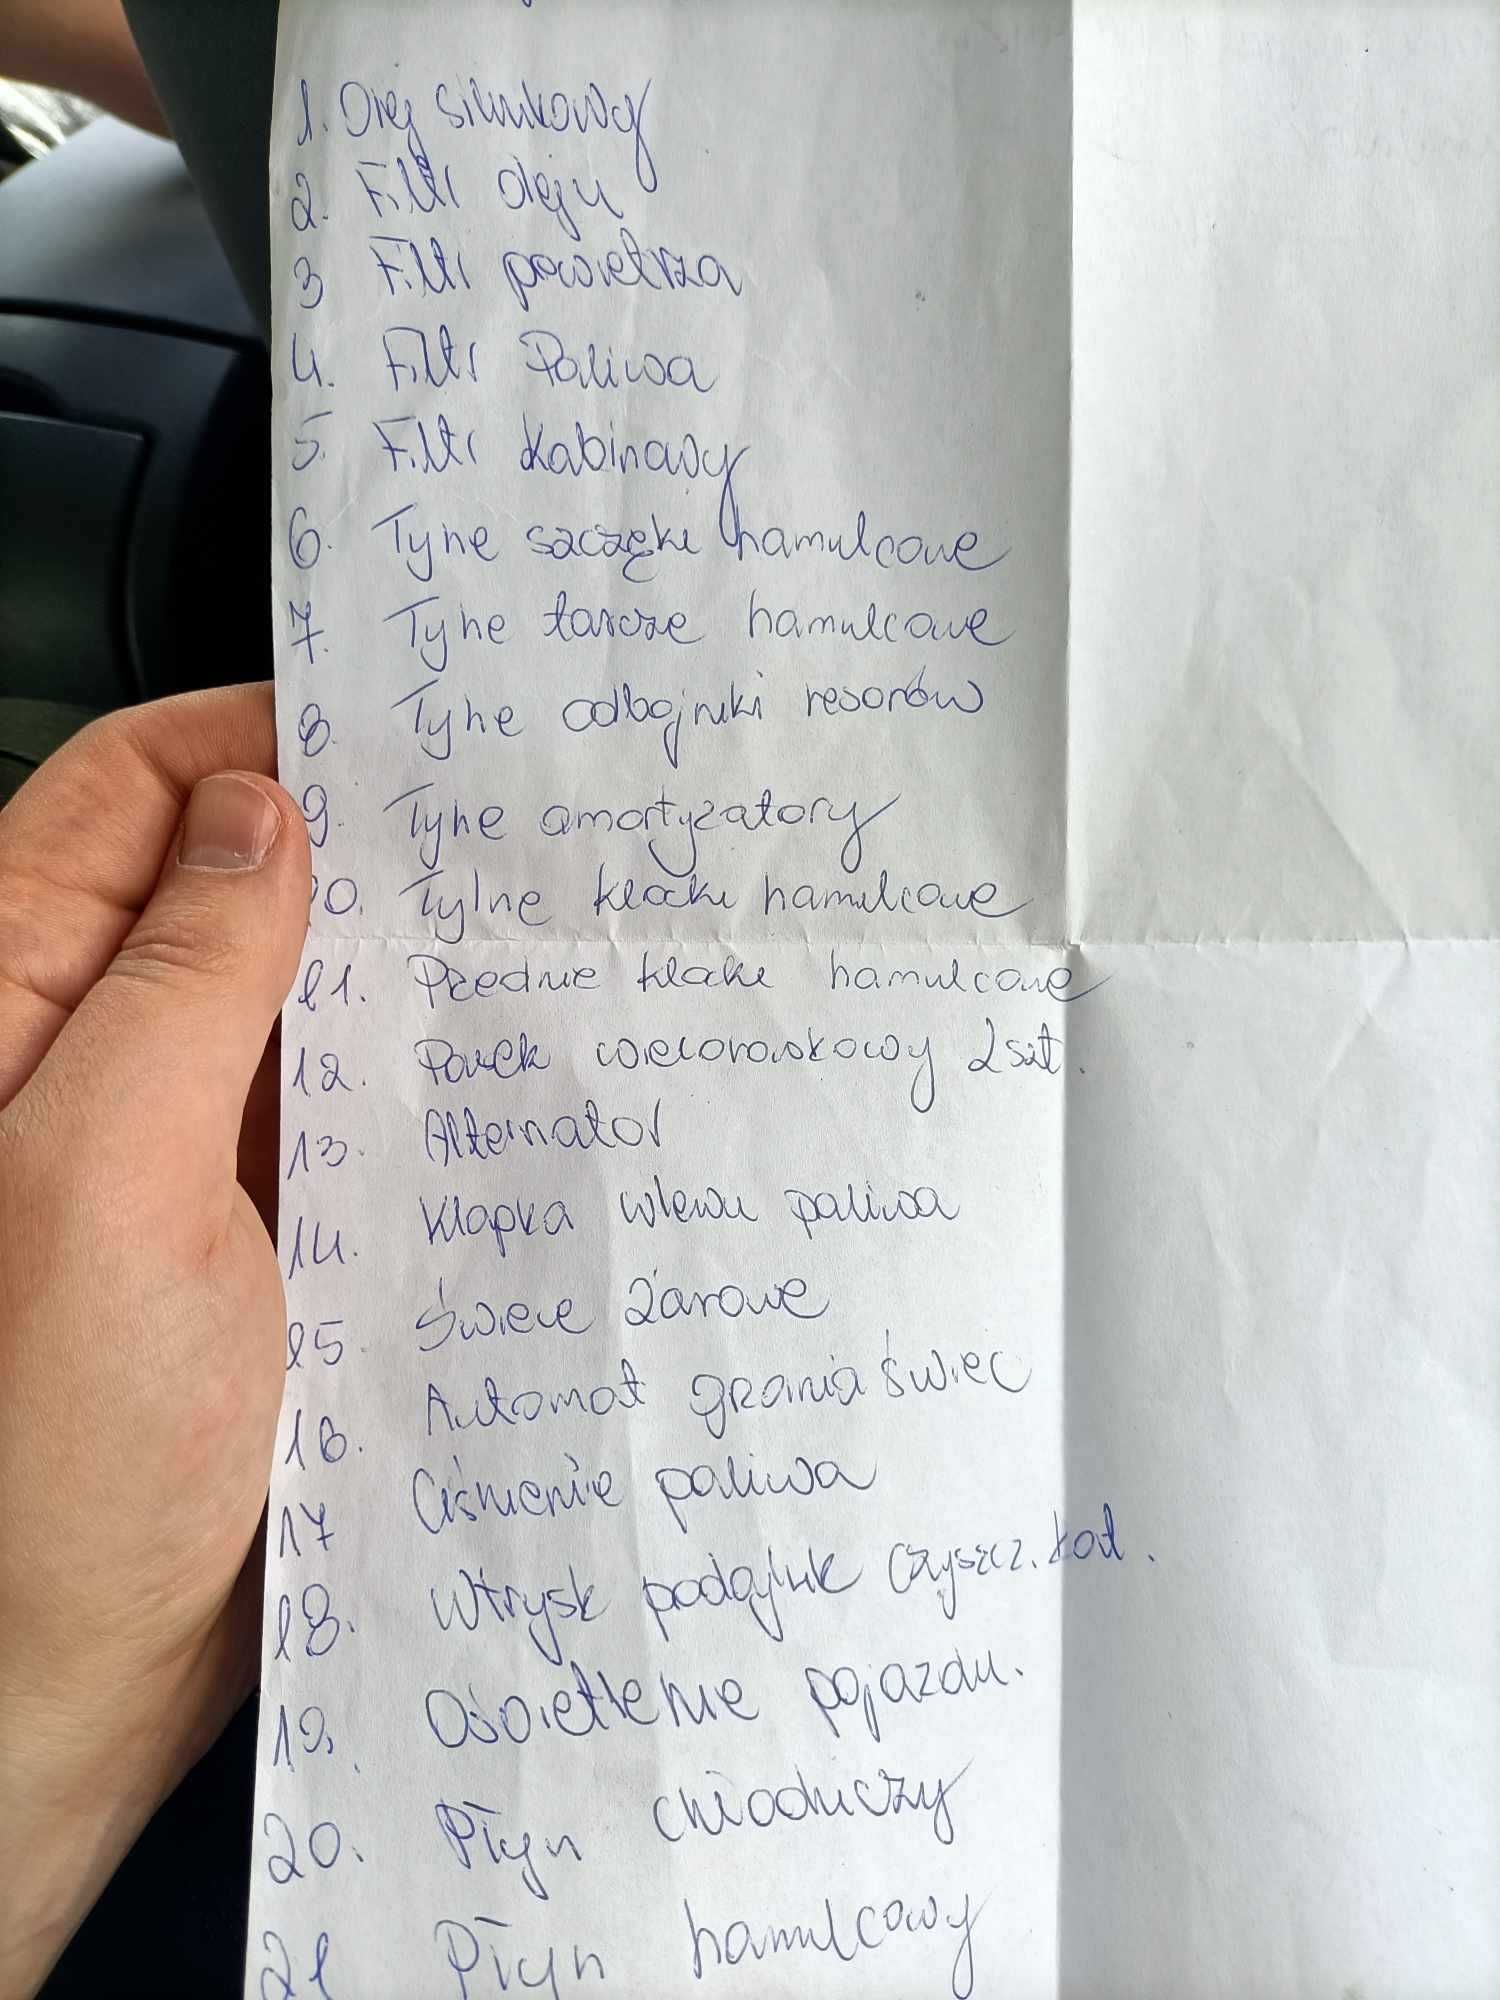 1. Olej silnikowy
2. Filtr oleju
3 Filtr powietrza
4. Filtr Paliwa
5. Filtr Kabinowy
6. Tylne szczęki hamulcowe
7. Tylne tarcze hamulcowe
8. Tylne odbojniki resorów
9. Tylne amortyzatory
10. Tylne klocki hamulcowe
11. Przednie klocki hamulcowe
12. Pasek wielorowkowy 2szt.
13. Alternator
14. Klapka wlewu paliwa
15. Świece Żarowe
16. Automat grzania świec
17 Ciśnienie paliwa
18. Wtrysk czyszcz. kat.
19. Oświetlenie pojazdu.
20. Płyn chłodniczy
21 Płyn hamulcowy